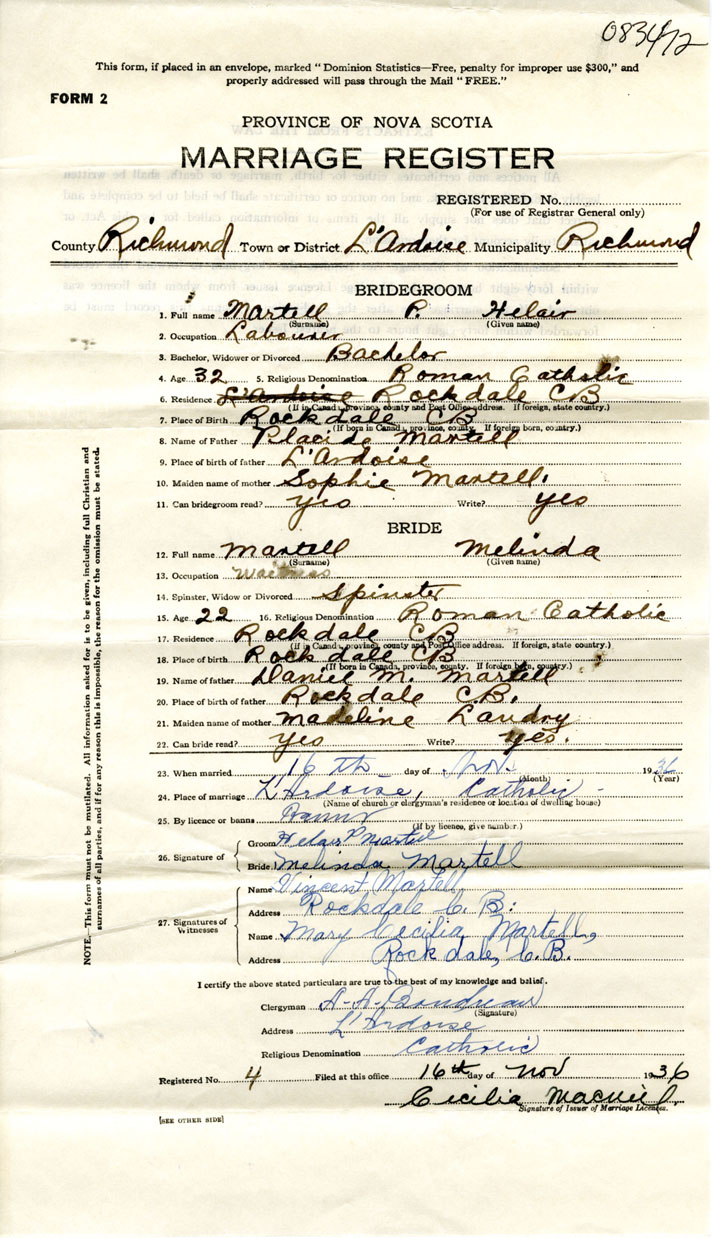 083472
This form, if placed in an envelope, marked "Dominion Statistics—Free, penalty for improper use $300," and
properly addressed will pass through the Mail "FREE."
FORM 2
PROVINCE OF NOVA SCOTIA
MARRIAGE REGISTER
REGISTERED No.
(For use of Registrar General only)
County Richmond Town or District L'Ardoise Municipality Richmond
BRIDEGROOM
1. Full name Martell P. Helair
(Surname) (Given name)
2. Occupation Labourer
3. Bachelor, Widower or Divorced Bachelor
4. Age 32 5. Religious Denomination Roman Catholic
6. Residence L'Ardoise Rockdale CB
(If in Canada, province, county and Post Office address. If foreign, state country.)
7. Place of Birth Rockdale CB
(If born in Canada, province, county. If foreign born, country.)
8. Name of Father Placide Martell
9. Place of birth of father L'Ardoise
10. Maiden name of mother Sophie Martell.
11. Can bridegroom read? yes Write? yes
BRIDE
12. Full name Martell Melinda
(Surname) (Given name)
13. Occupation
14. Spinster, Widow or Divorced Spinster
15. Age 22 16. Religious Denomination Roman Catholic
17. Residence Rockdale CB
(If in Canada, province, county and Post Office address. If foreign, state country.)
18. Place of birth Rockdale CB
(If born in Canada, province, county. If foreign born, country.)
19. Name of father Daniel M. Martell
20. Place of birth of father Rockdale C.B.
21. Maiden name of mother Madeline Landry
22. Can bride read? yes Write? yes.
23. When married 16th day of Nov. 1936
(Month) (Year)
24. Place of marriage L'Ardoise, Catholic -
(Name of church or clergyman's residence or location of dwelling house)
25. By licence or banns Banns
(If by licence, give number.)
26. Signature of
Groom Helair P Martell
Bride Melinda Martell
27. Signatures of Witnesses
Name Vincent Martell,
Address Rockdale C. B.
Name Mary Cecilia Martell,
Address Rockdale, C.B.
I certify the above stated particulars are true to the best of my knowledge and belief.
Clergyman A. A. Boudreau
(Signature)
Address L'Ardoise
Religious Denomination Catholic
Registered No. 4 Filed at this office 16th day of Nov 1936
Cecilia MacNeil
Signature of Issuer of Marriage Licences.
[SEE OTHER SIDE]
NOTE.—This form must not be mutilated. All information asked for is to be given, including full Christian and
surnames of all parties, and if for any reason this is impossible, the reason for the omission must be stated.